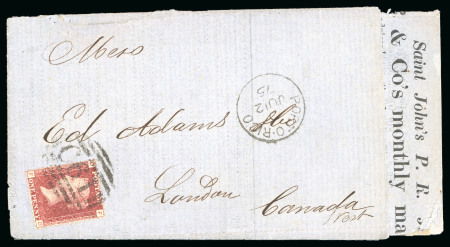 Mess
Ed Adams
London
Canada
West
PORTO-RICO
JU 12
75
Saint John's P. R.
& Co's monthly ma